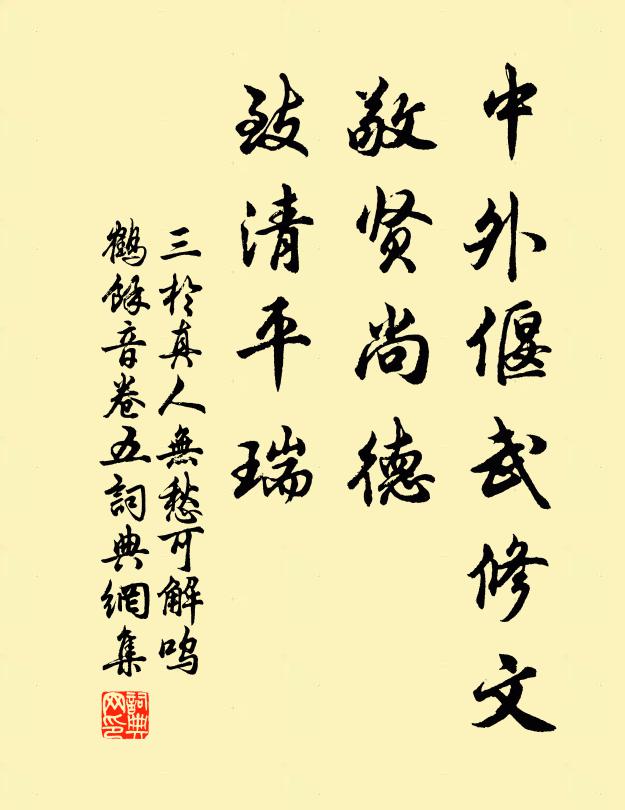 中外偃武修文
敬贤尚德
致清平瑞
三於真人無愁可解鸣
鶴餘音卷五詞典網集
詞典
网印